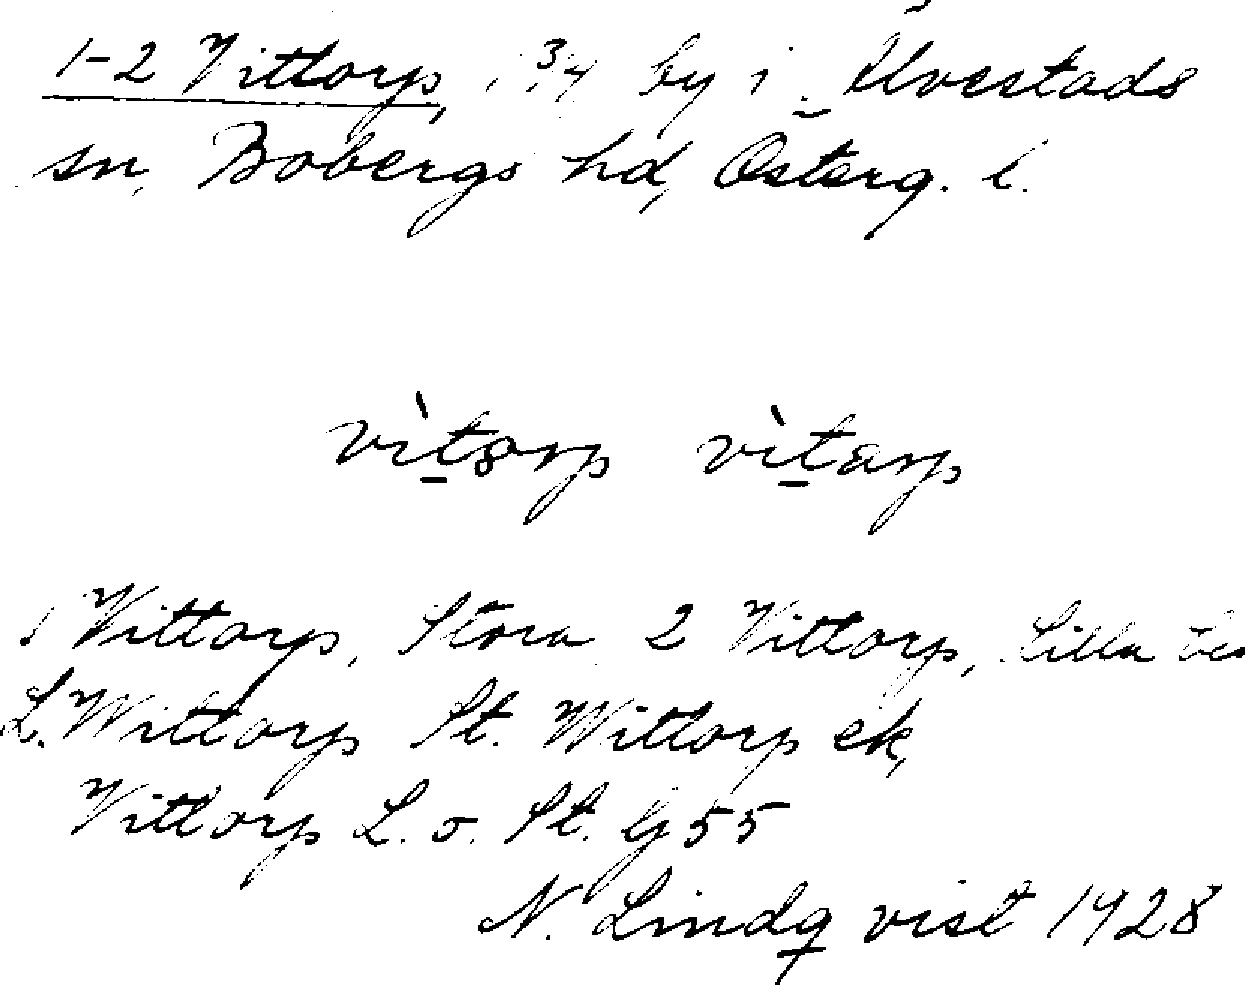 1-2 Vittorp, 1 3/4 by i Älvestads
sn, Bobergs hd, Österg. l.
vìtɵrp vìtarp
1 Vittorp, Stora 2 Vittorp, Lilla
L. Wittorp St. Wittorp ek,
Vittorp L. o. St. G 55
N. Lindqvist 1928